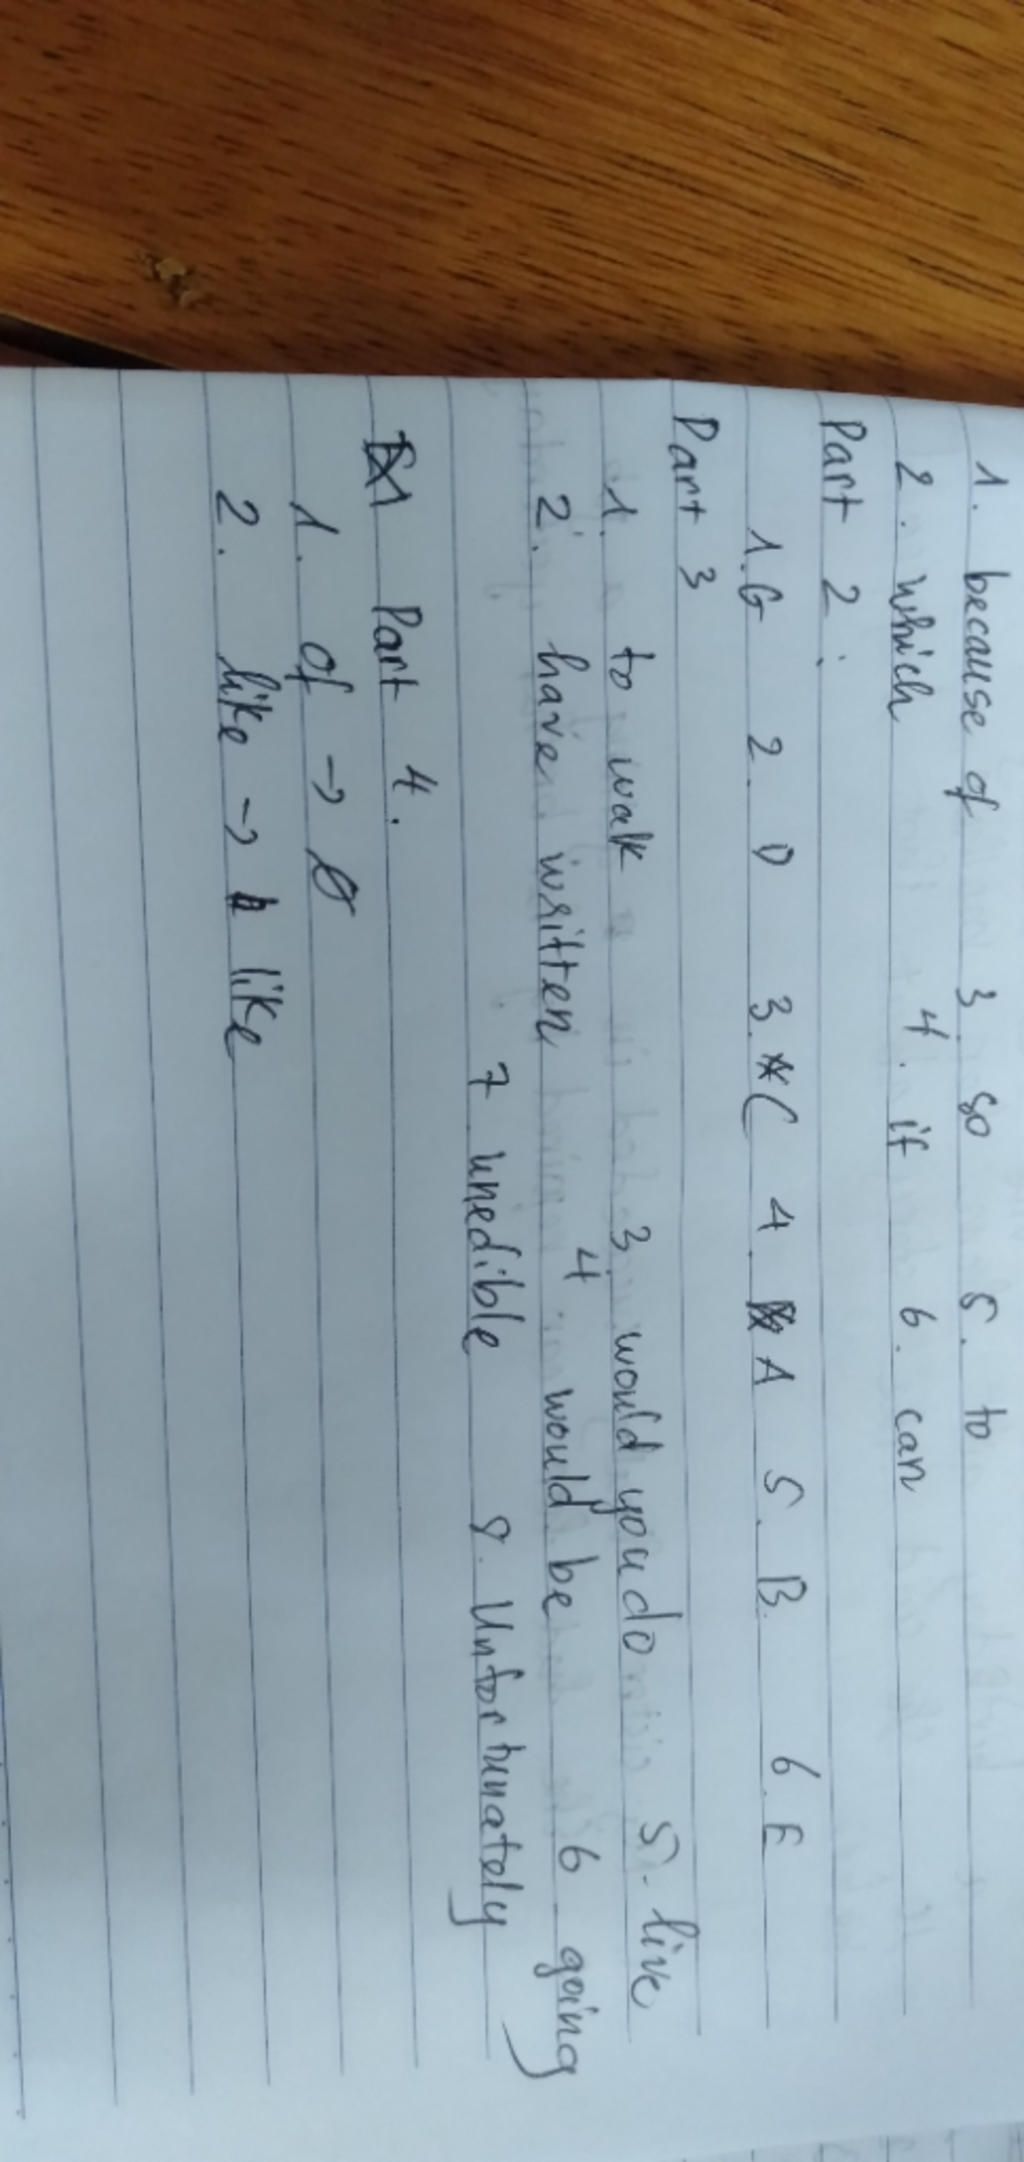 1. because of 3. so 5. to
2. which 4. if 6. can
Part 2:
1. G 2. D 3. C 4. A 5. B. 6. E
Part 3
1. to walk 3. would you do 5. live
2. have written 4. would be 6. going
7 unedible 8. Unfortunately
Part 4.
1. of → Ø
2. like → like